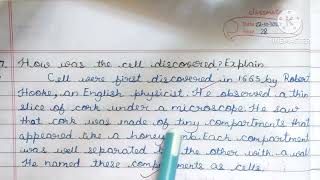 classmate
Date
Page 28
7. How was the cell discovered? Explain
Cell were first discovered in 1665 by Robert
Hooke, an English physicist. He observed a thin
slice of cork under a microscope. He saw
that cork was made of tiny compartments that
appeared like a honey Each compartment
was well separated the other with a wal
He named these as cells.